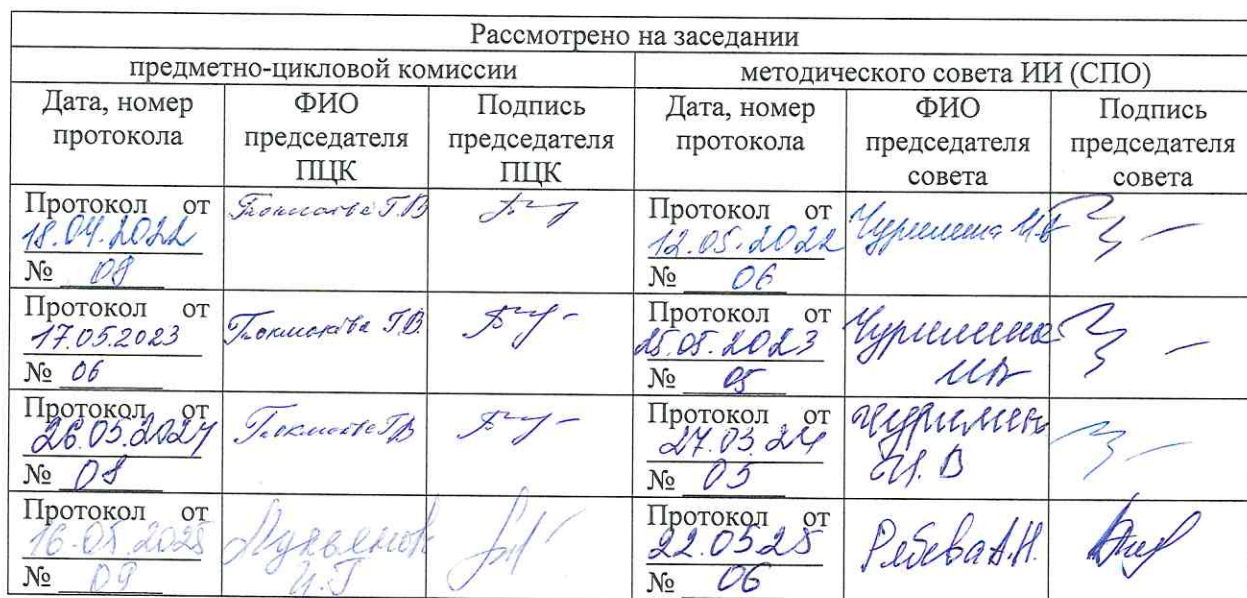 Рассмотрено на заседании
предметно-цикловой комиссии методического совета ИИ (СПО)
Дата, номер протокола ФИО председателя ПЦК Подпись председателя ПЦК Дата, номер протокола ФИО председателя совета Подпись председателя совета
Протокол от
18.04.2022
№ 08
Протокол от
12.05.2022
№ 06
Чурилина И.В
Протокол от
17.05.2023
№ 06
Токмакова Г.В.
Протокол от
25.05.2023
№ 05
Чурилина
ИВ
Протокол от
26.03.2024
№ 08
Протокол от
27.03.24
№ 03
Чурилин
И.В
Протокол от
16.05.2025
№ 09
Лукьянов
И.Г
Протокол от
22.05.25
№ 06
Рябева А.Н.